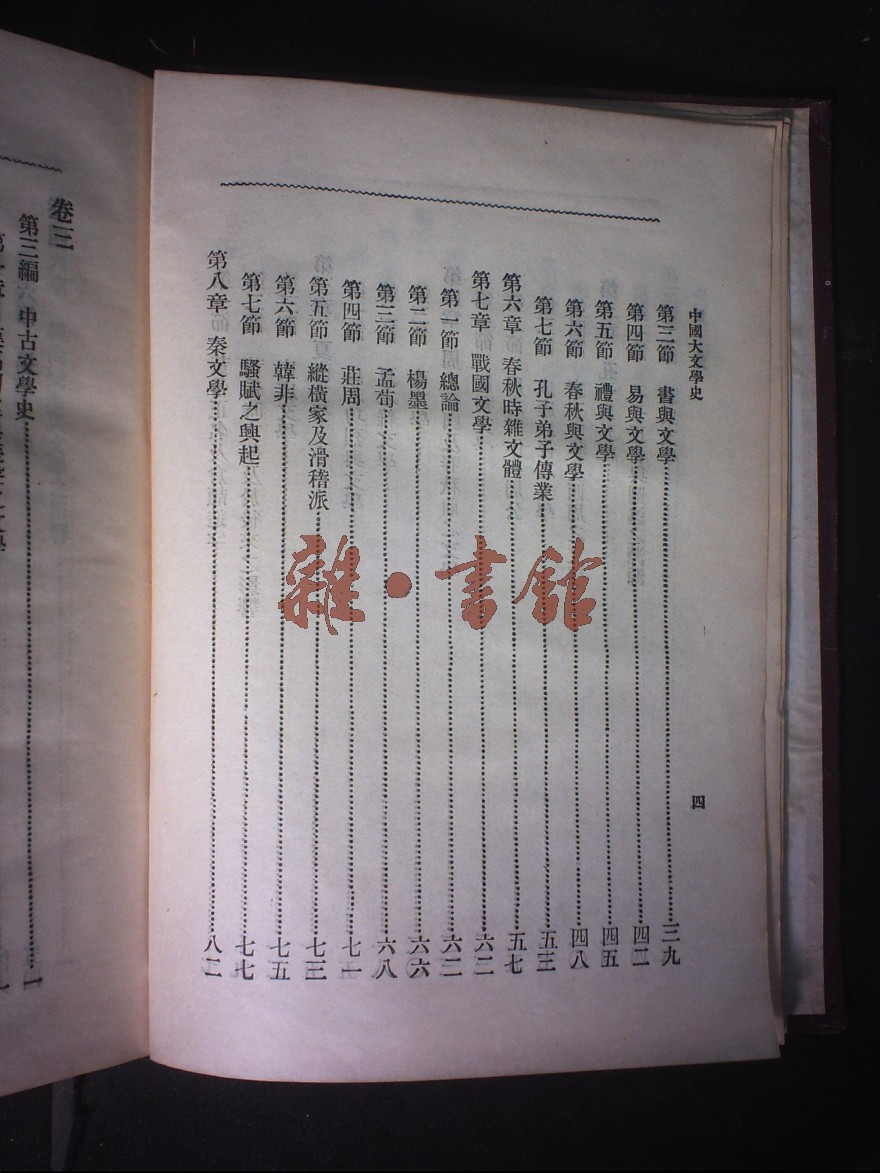 中國大文學史
四
第三節　書與文學 三九
第四節　易與文學 四二
第五節　禮與文學 四五
第六節　春秋與文學 四八
第七節　孔子弟子傳業 五三
第六章　春秋時雜文體 五七
第七章　戰國文學 六二
第一節　總論 六二
第二節　楊墨 六六
第三節　孟荀 六八
第四節　莊周 七一
第五節　縱橫家及滑稽派 七三
第六節　韓非 七五
第七節　騷賦之興起 七七
第八章　秦文學 八二
卷三
第三編　中古文學史 一
雜·書館